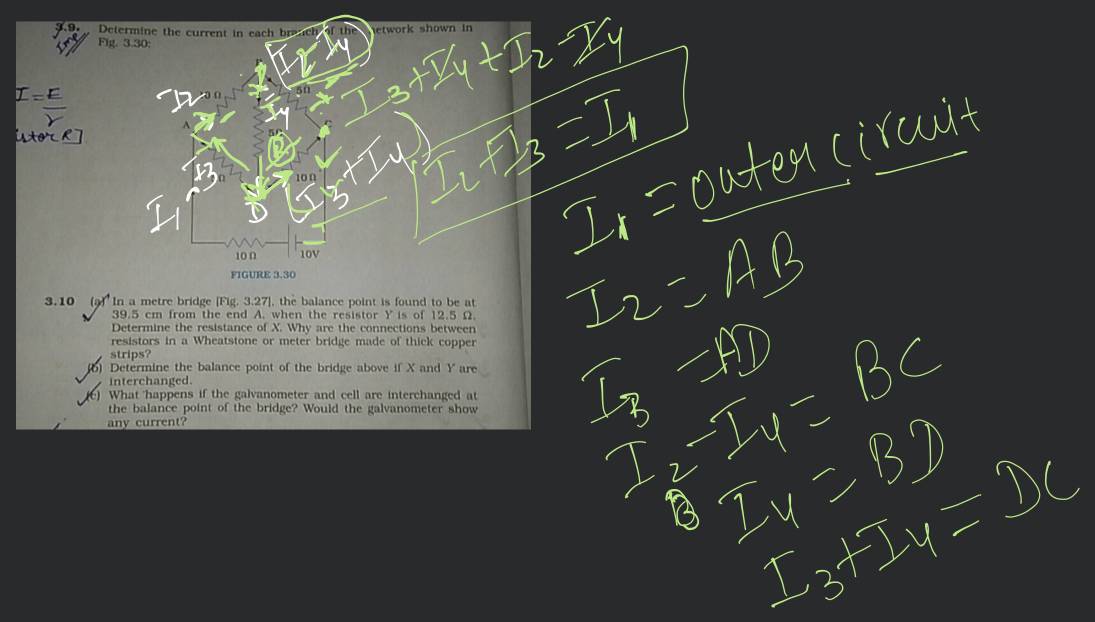 3.9. Determine the current in each branch of the network shown in
Imp Fig. 3.30:
(I2-I4)
I3+I4+I2-I4
I=E
r
istor R]
I2
10 Ω
5Ω
I4
A
5Ω
B
I2+I3=I1
I3
10 Ω
(I3+I4)
D
I1
10 Ω
10V
FIGURE 3.30
I1=outer circuit
I2=AB
I3=AD
I2-I4=BC
B I4=BD
I3+I4=DC
3.10 (a) In a metre bridge [Fig. 3.27], the balance point is found to be at
39.5 cm from the end A, when the resistor Y is of 12.5 Ω.
Determine the resistance of X. Why are the connections between
resistors in a Wheatstone or meter bridge made of thick copper
strips?
(b) Determine the balance point of the bridge above if X and Y are
interchanged.
(c) What happens if the galvanometer and cell are interchanged at
the balance point of the bridge? Would the galvanometer show
any current?